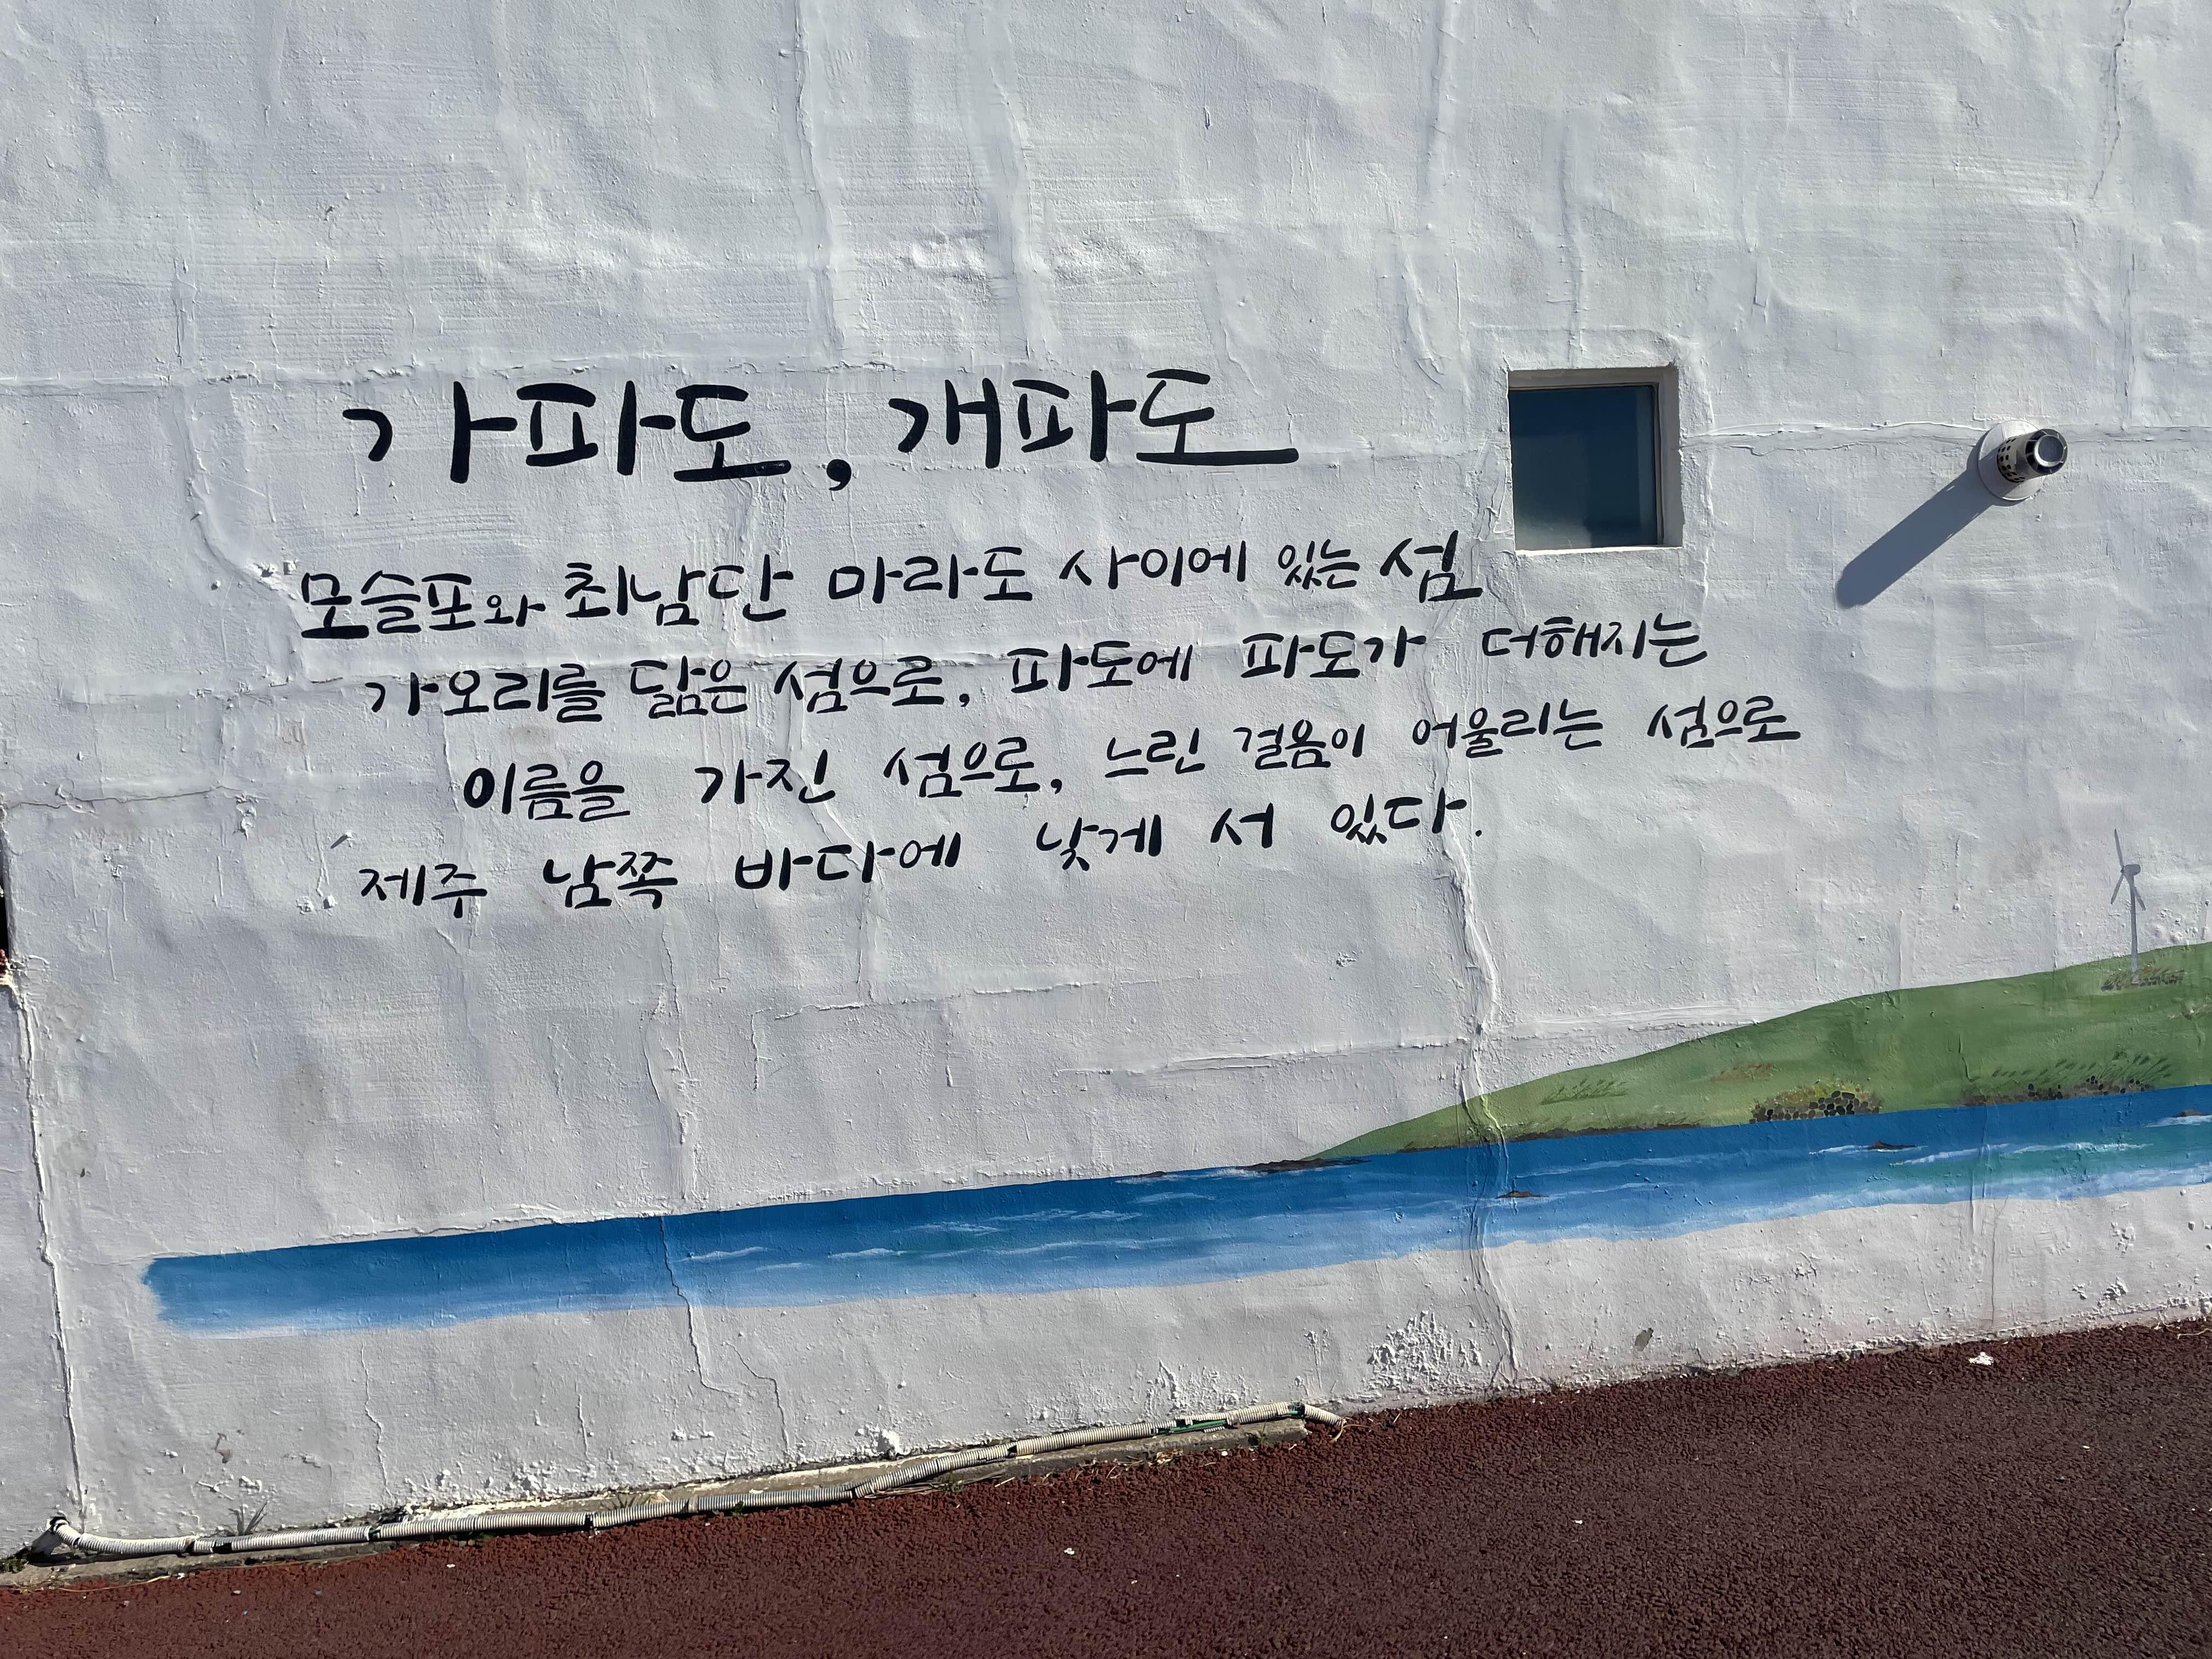 가파도, 개파도
모슬포와 최남단 마라도 사이에 있는 섬
가오리를 닮은 섬으로, 파도에 파도가 더해지는
이름을 가진 섬으로, 느린 걸음이 어울리는 섬으로
제주 남쪽 바다에 낮게 서 있다.